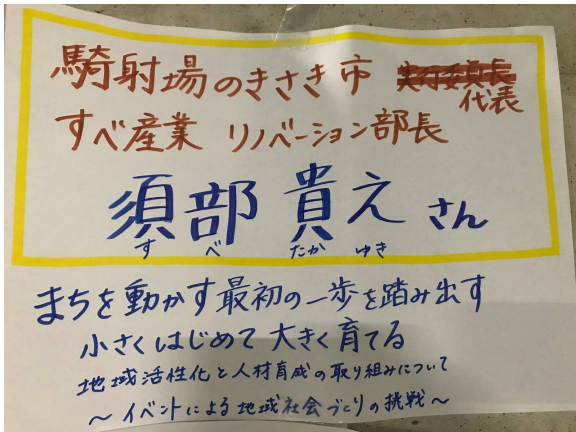 騎射場のきさき市 実行委員長
代表
すべ産業 リノベーション部長
須部 貴之 さん
すべ たかゆき
まちを動かす最初の一歩を踏み出す
小さくはじめて 大きく育てる
地域活性化と人材育成の取り組みについて
〜イベントによる地域社会づくりの挑戦〜